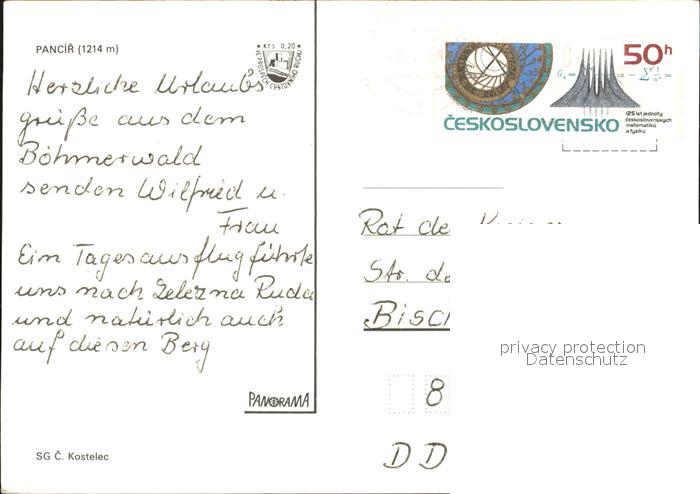 PANCÍŘ (1214 m)
Kčs 0,20
VE PROSPĚCH CESTOVNÍHO RUCHU
Herzliche Urlaubs
grüße aus dem
Böhmerwald
senden Wilfried u.
Frau
Ein Tagesausflug führte
uns nach Zelezna Ruda
und natürlich auch
auf diesen Berg
PANORAMA
SG Č. Kostelec
50h
ČESKOSLOVENSKO
125 let jednoty
československých
matematiků
a fyziků
Rat de
Str. de
Bisc
8
DD
privacy protection
Datenschutz